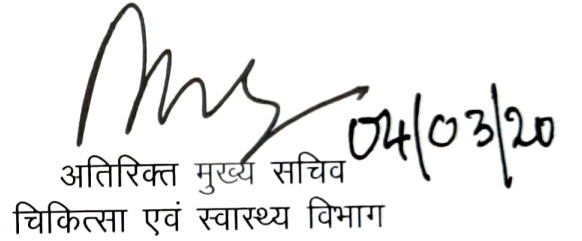 04/03/20
अतिरिक्त मुख्य सचिव
चिकित्सा एवं स्वास्थ्य विभाग